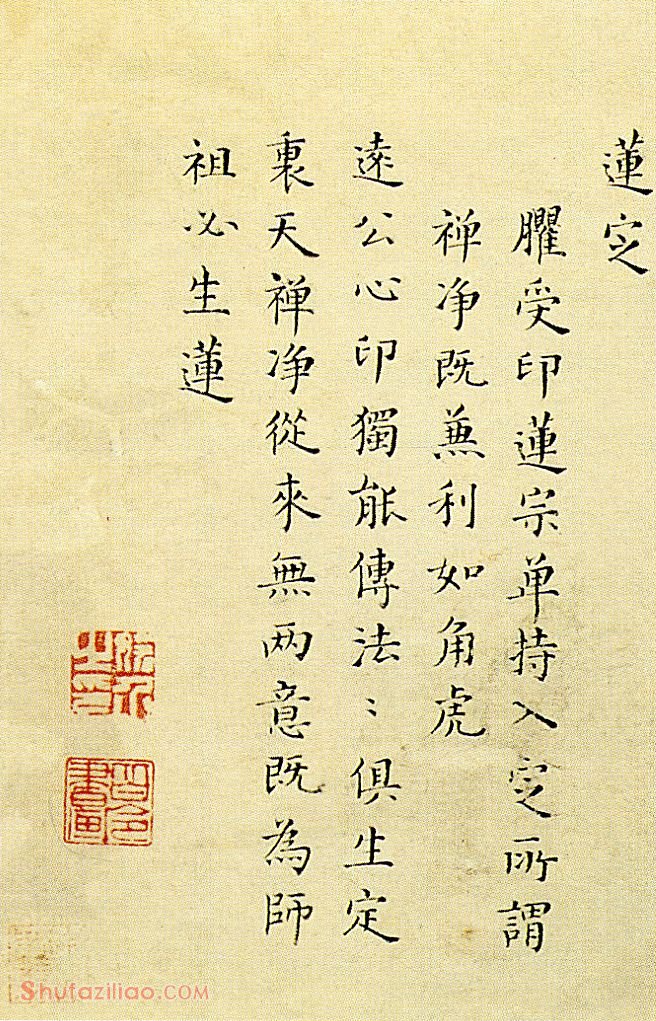 蓮㝎
臞受印蓮宗单持入㝎所謂
禅净既兼利如角虎
遠公心印獨能傳法〻俱生定
裏天禅净從來無两意既為師
祖必生蓮
Shufaziliao.COM